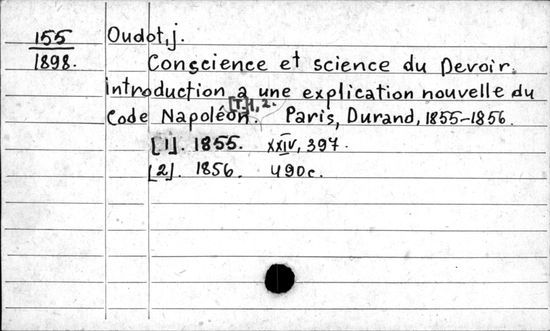 155
1898.
Oudot, j.
Conscience et science du Devoir.
introduction a une explication nouvelle du
Code Napoléon. [T.] 1, 2. Paris, Durand, 1855-1856.
[1]. 1855. XXIV, 397.
[2]. 1856. 490 c.